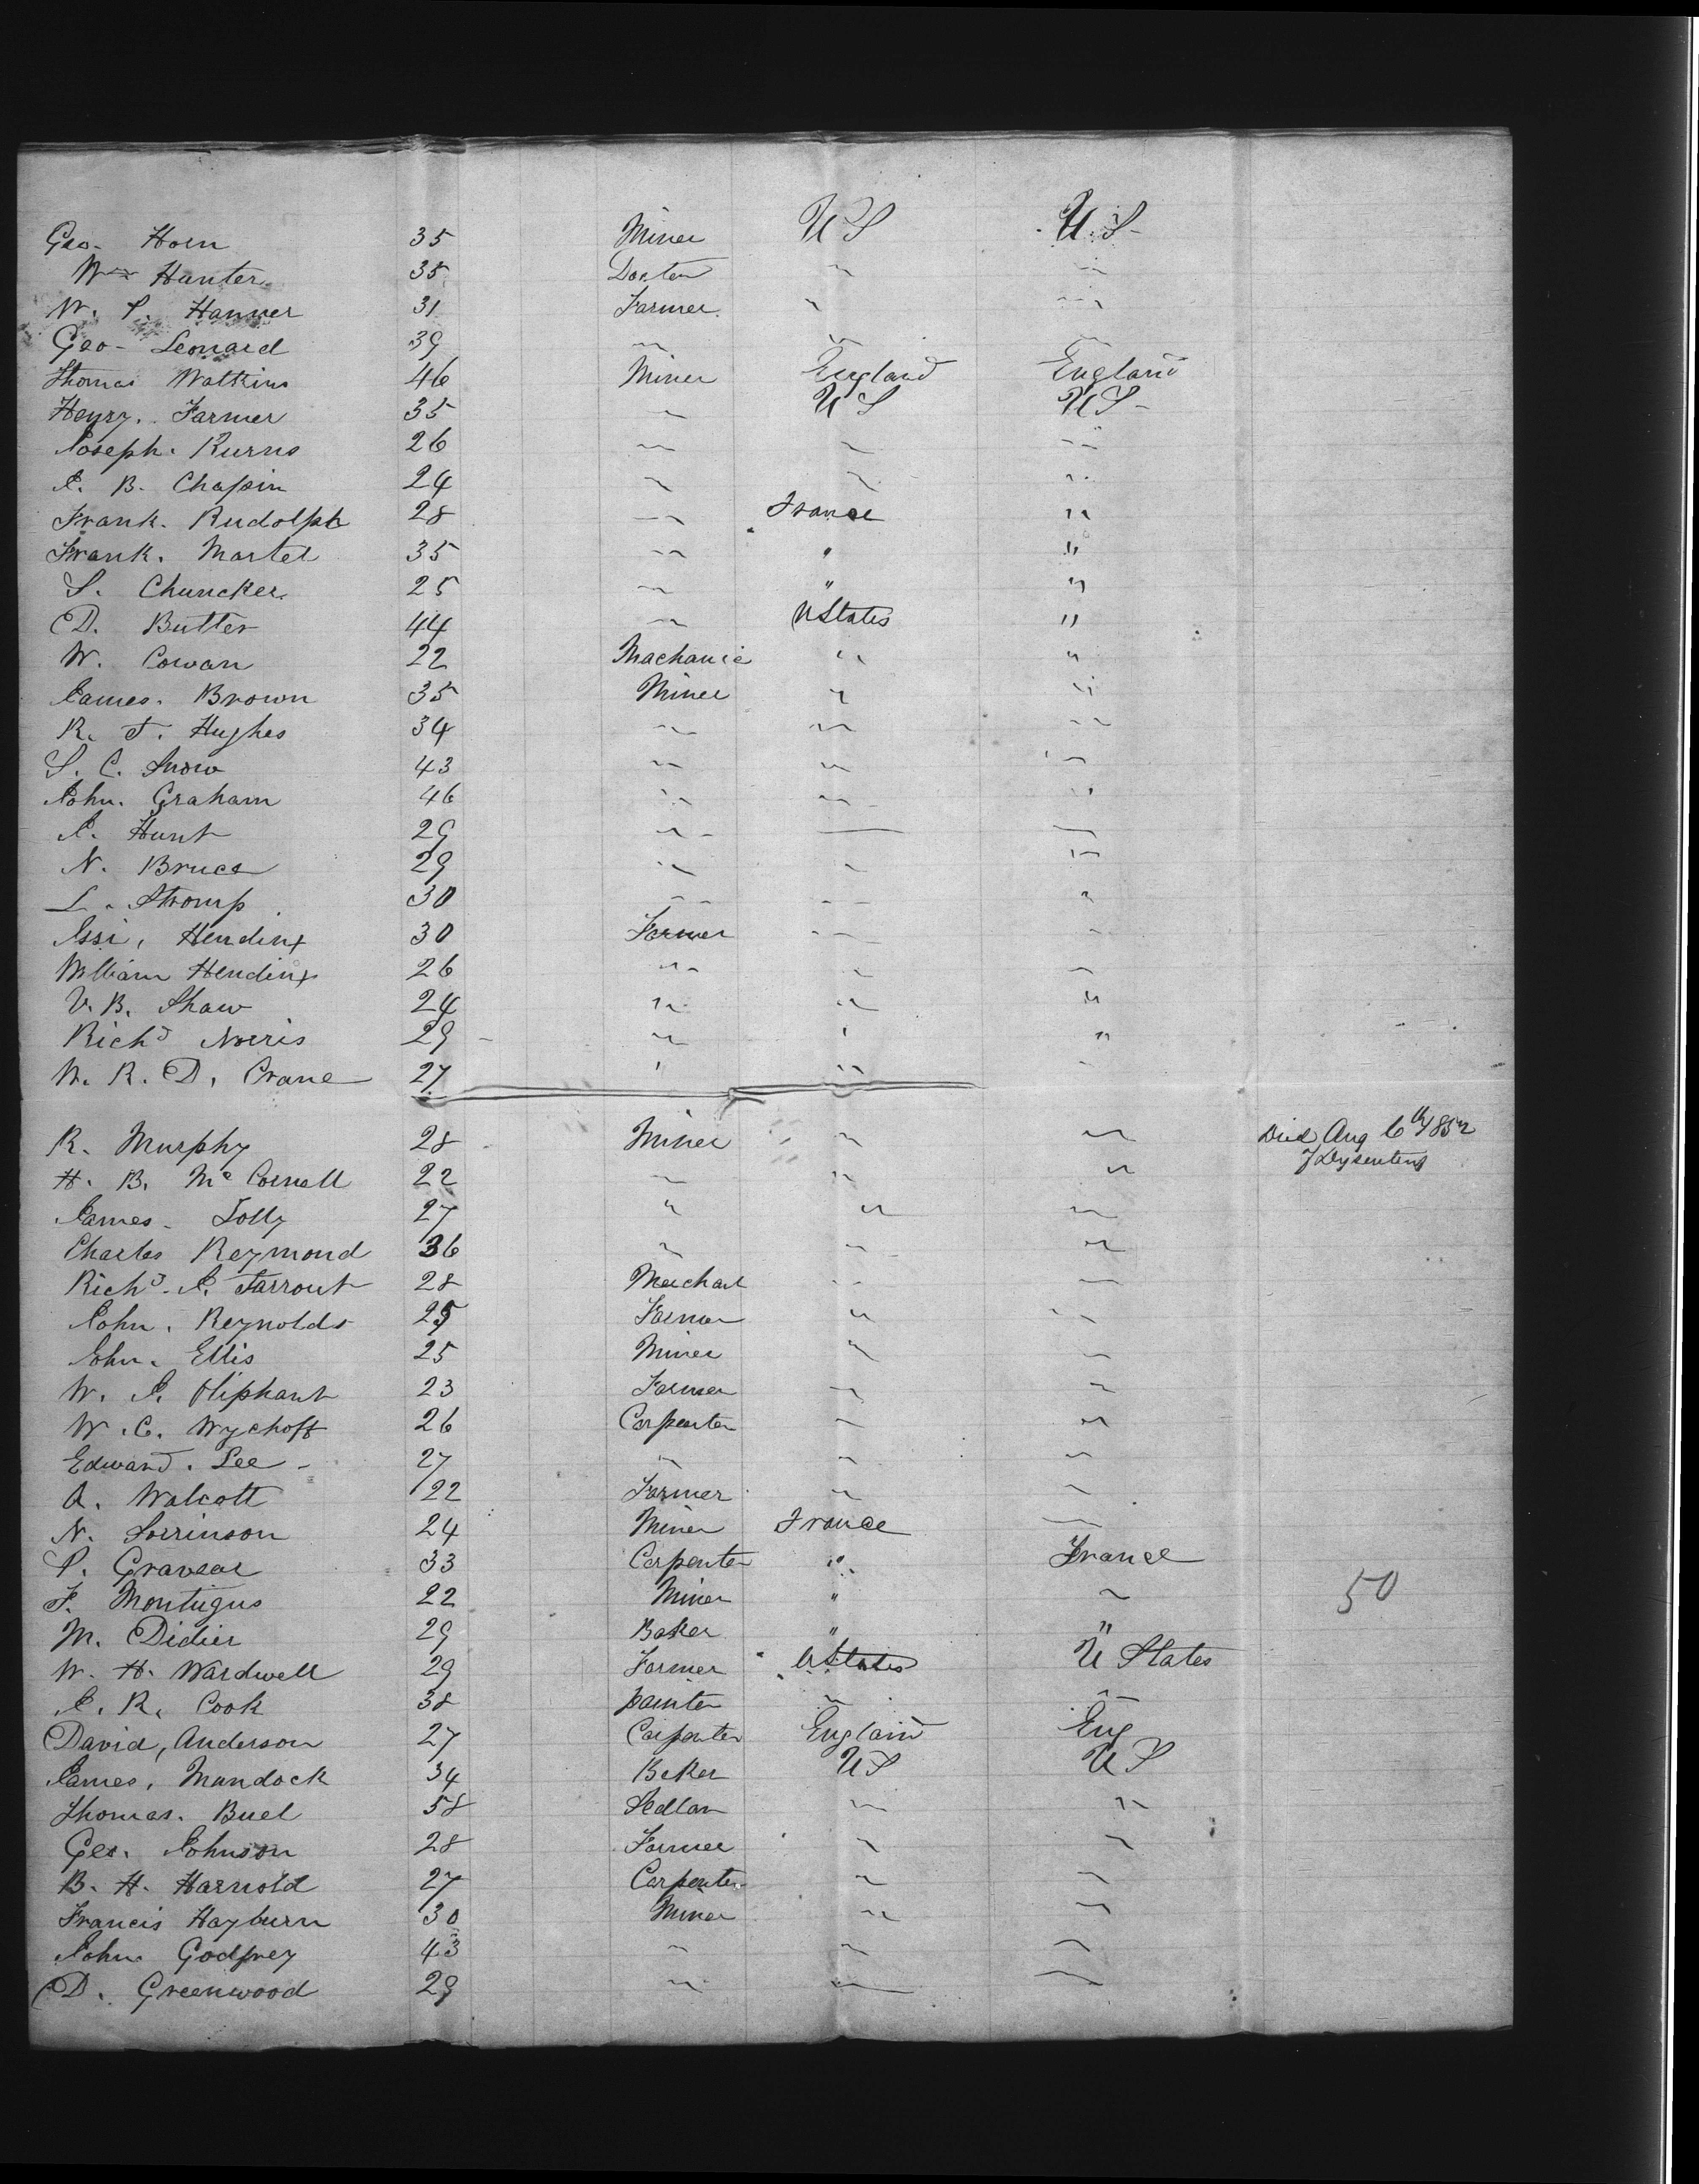 Geo- Horn 35 Miner U S U. S-
Wm Hunter 35 Docter " "
W. P. Hanver 31 Farmer " "
Geo- Leonard 39 " " "
Thomas Watkins 46 Miner England England
Henry. Farmer 35 " U S U S-
Joseph. Kurns 26 " " "
J. B. Chapin 24 " " "
Frank. Rudolph 28 " France "
Frank. Martel 35 " " "
S. Chuncker 25 " " "
D. Butter 44 " U States "
W. Cowan 22 Machanic " "
James. Brown 35 Miner " "
R. T. Hughes 34 " " "
S. C. Snow 43 " " "
John. Graham 46 " " "
J. Hunt 29 " " "
N. Bruce 29 " " "
L. Stromp 30 " " "
Hendinx 30 Farmer " "
William Hendinx 26 " " "
V. B. Shaw 24 " " "
Richd Norris 29 - " " "
W. R. D. Crane 27 " " "
R. Murphy 28 Miner " " Died Aug 6th 1852
H. B. Mc Cornell 22 " " " f Dysentery
James- Jolly 27 " " "
Charles Reymond 36 " " "
Richd- J. Tarrout 28 Merchant " "
John. Reynolds 25 Farmer " "
John. Ellis 25 Miner " "
W. J. Oliphant 23 Farmer " "
W. C. Wychoff 26 Carpenter " "
Edward. Lee - 27 " " "
A. Walcott 22 Farmer " "
N. Sorrinson 24 Miner France "
P. Graveae 33 Carpenter " France
F. Montugus 22 Miner " " 50
M. Didier 29 Baker " "
W. H. Wardwell 29 Farmer U States U States
J. R. Cook 38 painter " "
David, Anderson 27 Carpenter England Eng
James, Mundock 34 Beker U S U S
Thomas. Buel 58 " "
Geo. Johnson 28 Farmer " "
B. H. Harnold 27 Carpenter " "
Francis Hayburn 30 Miner " "
John Godfrey 43 " " "
D. Greenwood 29 " " "